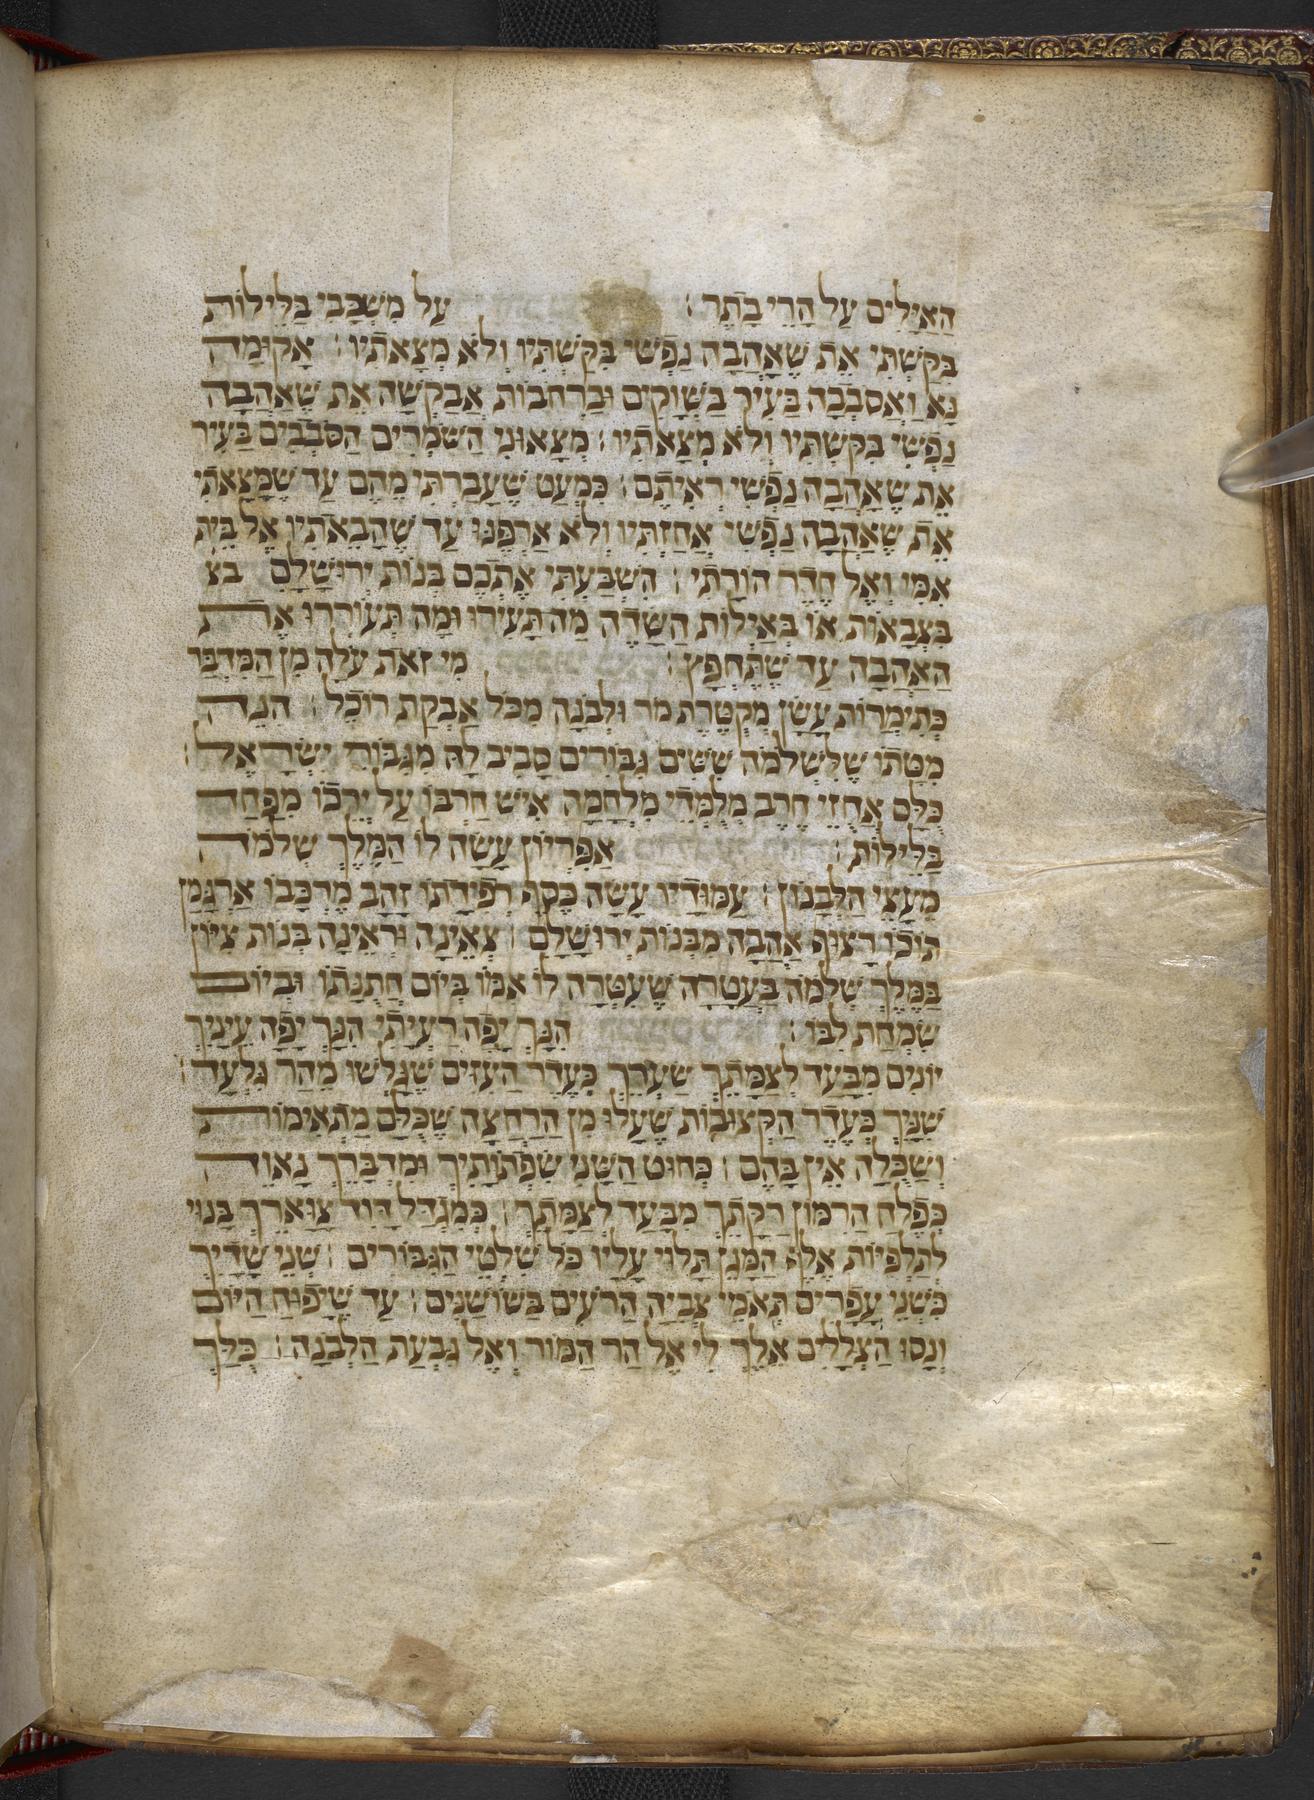 הָאַיָּלִים עַל הָרֵי בָתֶר׃ עַל מִשְׁכָּבִי בַּלֵּילוֹת
בִּקַּשְׁתִּי אֵת שֶׁאָהֲבָה נַפְשִׁי בִּקַּשְׁתִּיו וְלֹא מְצָאתִיו׃ אָקוּמָה
נָּא וַאֲסוֹבְבָה בָעִיר בַּשְּׁוָקִים וּבָרְחֹבוֹת אֲבַקְשָׁה אֵת שֶׁאָהֲבָה
נַפְשִׁי בִּקַּשְׁתִּיו וְלֹא מְצָאתִיו׃ מְצָאוּנִי הַשֹּׁמְרִים הַסֹּבְבִים בָּעִיר
אֵת שֶׁאָהֲבָה נַפְשִׁי רְאִיתֶם׃ כִּמְעַט שֶׁעָבַרְתִּי מֵהֶם עַד שֶׁמָּצָאתִי
אֵת שֶׁאָהֲבָה נַפְשִׁי אֲחַזְתִּיו וְלֹא אַרְפֶּנּוּ עַד שֶׁהֲבֵאתִיו אֶל בֵּית
אִמִּי וְאֶל חֶדֶר הוֹרָתִי׃ הִשְׁבַּעְתִּי אֶתְכֶם בְּנוֹת יְרוּשָׁלַם בצ
בִּצְבָאוֹת אוֹ בְּאַיְלוֹת הַשָּׂדֶה מַה תָּעִירוּ וּמַה תְּעוֹרְרוּ אֶת
הָאַהֲבָה עַד שֶׁתֶּחְפָּץ׃ מִי זֹאת עֹלָה מִן הַמִּדְבָּר
כְּתִימְרוֹת עָשָׁן מְקֻטֶּרֶת מֹר וּלְבֹנָה מִכֹּל אַבְקַת רוֹכֵל׃ הִנֵּה
מִטָּתוֹ שֶׁלִּשְׁלֹמֹה שִׁשִּׁים גִּבּוֹרִים סָבִיב לָהּ מִגִּבּוֹרֵי יִשְׂרָאֵל׃
כֻּלָּם אֲחֻזֵי חֶרֶב מְלֻמְּדֵי מִלְחָמָה אִישׁ חַרְבּוֹ עַל יְרֵכוֹ מִפַּחַד
בַּלֵּילוֹת׃ אַפִּרְיוֹן עָשָׂה לוֹ הַמֶּלֶךְ שְׁלֹמֹה
מֵעֲצֵי הַלְּבָנוֹן׃ עַמּוּדָיו עָשָׂה כֶסֶף רְפִידָתוֹ זָהָב מֶרְכָּבוֹ אַרְגָּמָן
תּוֹכוֹ רָצוּף אַהֲבָה מִבְּנוֹת יְרוּשָׁלָם׃ צְאֶינָה וּרְאֶינָה בְּנוֹת צִיּוֹן
בַּמֶּלֶךְ שְׁלֹמֹה בָּעֲטָרָה שֶׁעִטְּרָה לּוֹ אִמּוֹ בְּיוֹם חֲתֻנָּתוֹ וּבְיוֹם
שִׂמְחַת לִבּוֹ׃ הִנָּךְ יָפָה רַעְיָתִי הִנָּךְ יָפָה עֵינַיִךְ
יוֹנִים מִבַּעַד לְצַמָּתֵךְ שַׂעְרֵךְ כְּעֵדֶר הָעִזִּים שֶׁגָּלְשׁוּ מֵהַר גִּלְעָד׃
שִׁנַּיִךְ כְּעֵדֶר הַקְּצוּבוֹת שֶׁעָלוּ מִן הָרַחְצָה שֶׁכֻּלָּם מַתְאִימוֹת
וְשַׁכֻּלָה אֵין בָּהֶם׃ כְּחוּט הַשָּׁנִי שִׂפְתוֹתַיִךְ וּמִדְבָּרֵךְ נָאוֶה
כְּפֶלַח הָרִמּוֹן רַקָּתֵךְ מִבַּעַד לְצַמָּתֵךְ׃ כְּמִגְדַּל דָּוִיד צַוָּארֵךְ בָּנוּי
לְתַלְפִּיּוֹת אֶלֶף הַמָּגֵן תָּלוּי עָלָיו כֹּל שִׁלְטֵי הַגִּבּוֹרִים׃ שְׁנֵי שָׁדַיִךְ
כִּשְׁנֵי עֳפָרִים תְּאֹמֵי צְבִיָּה הָרֹעִים בַּשּׁוֹשַׁנִּים׃ עַד שֶׁיָּפוּחַ הַיּוֹם
וְנָסוּ הַצְּלָלִים אֵלֶךְ לִי אֶל הַר הַמּוֹר וְאֶל גִּבְעַת הַלְּבֹנָה׃ כֻּלָּךְ